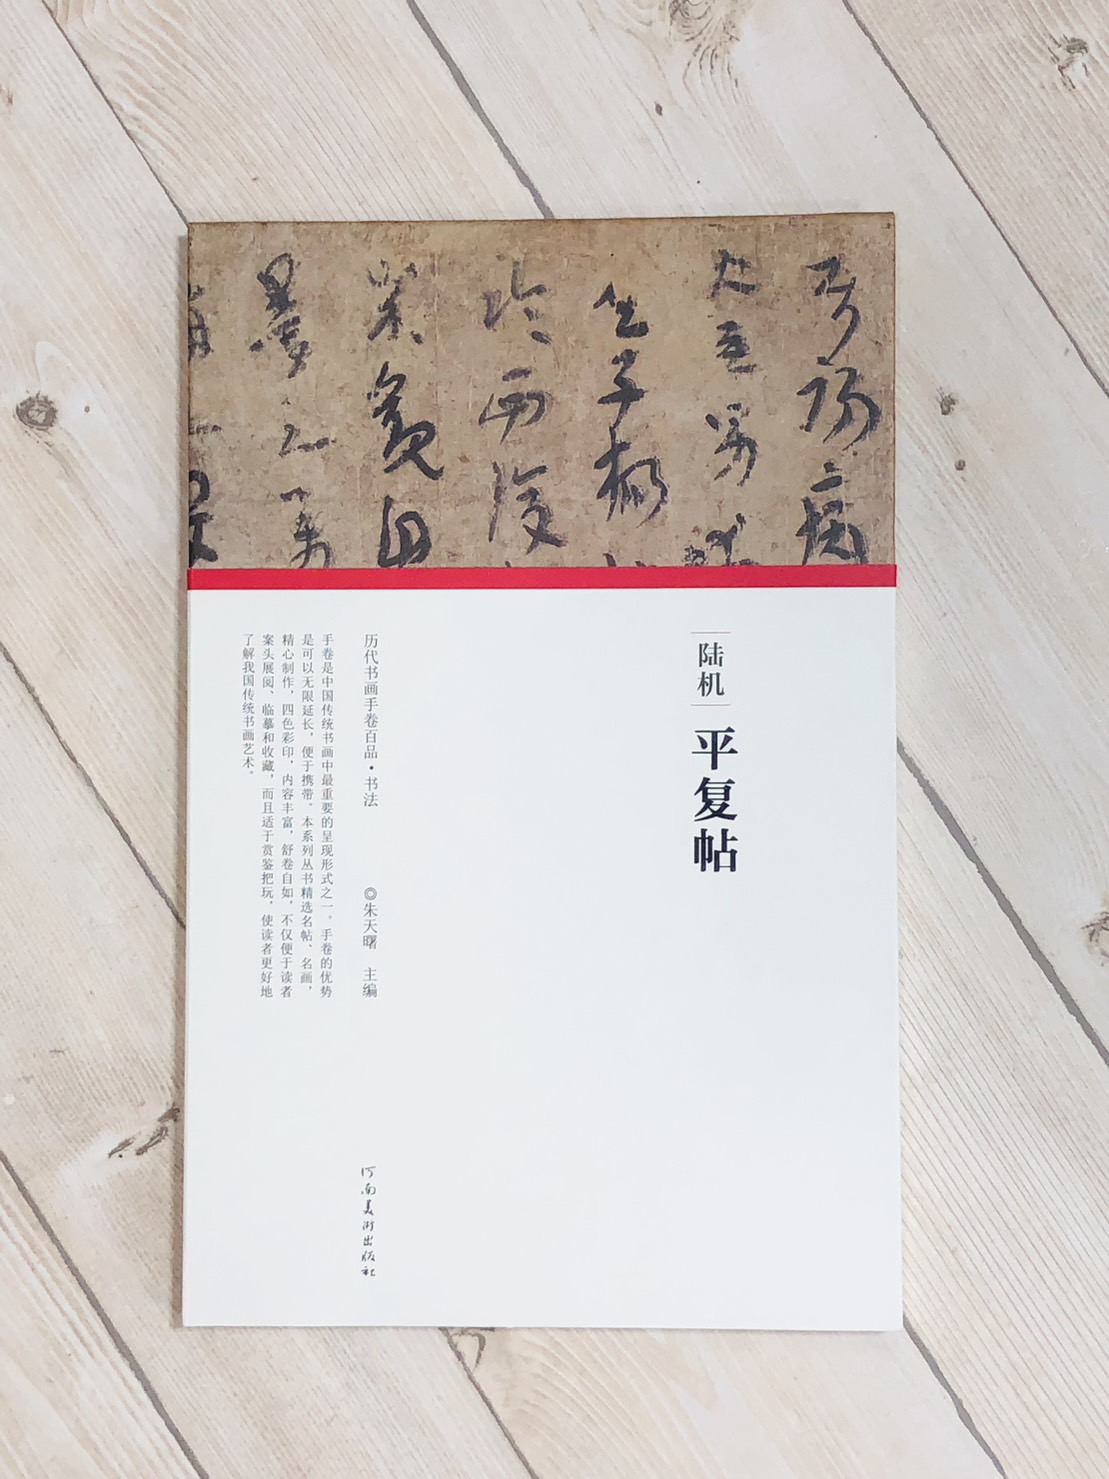 陆机
平复帖
历代书画手卷百品·书法
◎朱天曙 主编
手卷是中国传统书画中最重要的呈现形式之一。手卷的优势
是可以无限延长，便于携带。本系列丛书精选名帖、名画，
精心制作，四色彩印，内容丰富，舒卷自如，不仅便于读者
案头展阅、临摹和收藏，而且适于赏鉴把玩，使读者更好地
了解我国传统书画艺术。
河南美术出版社